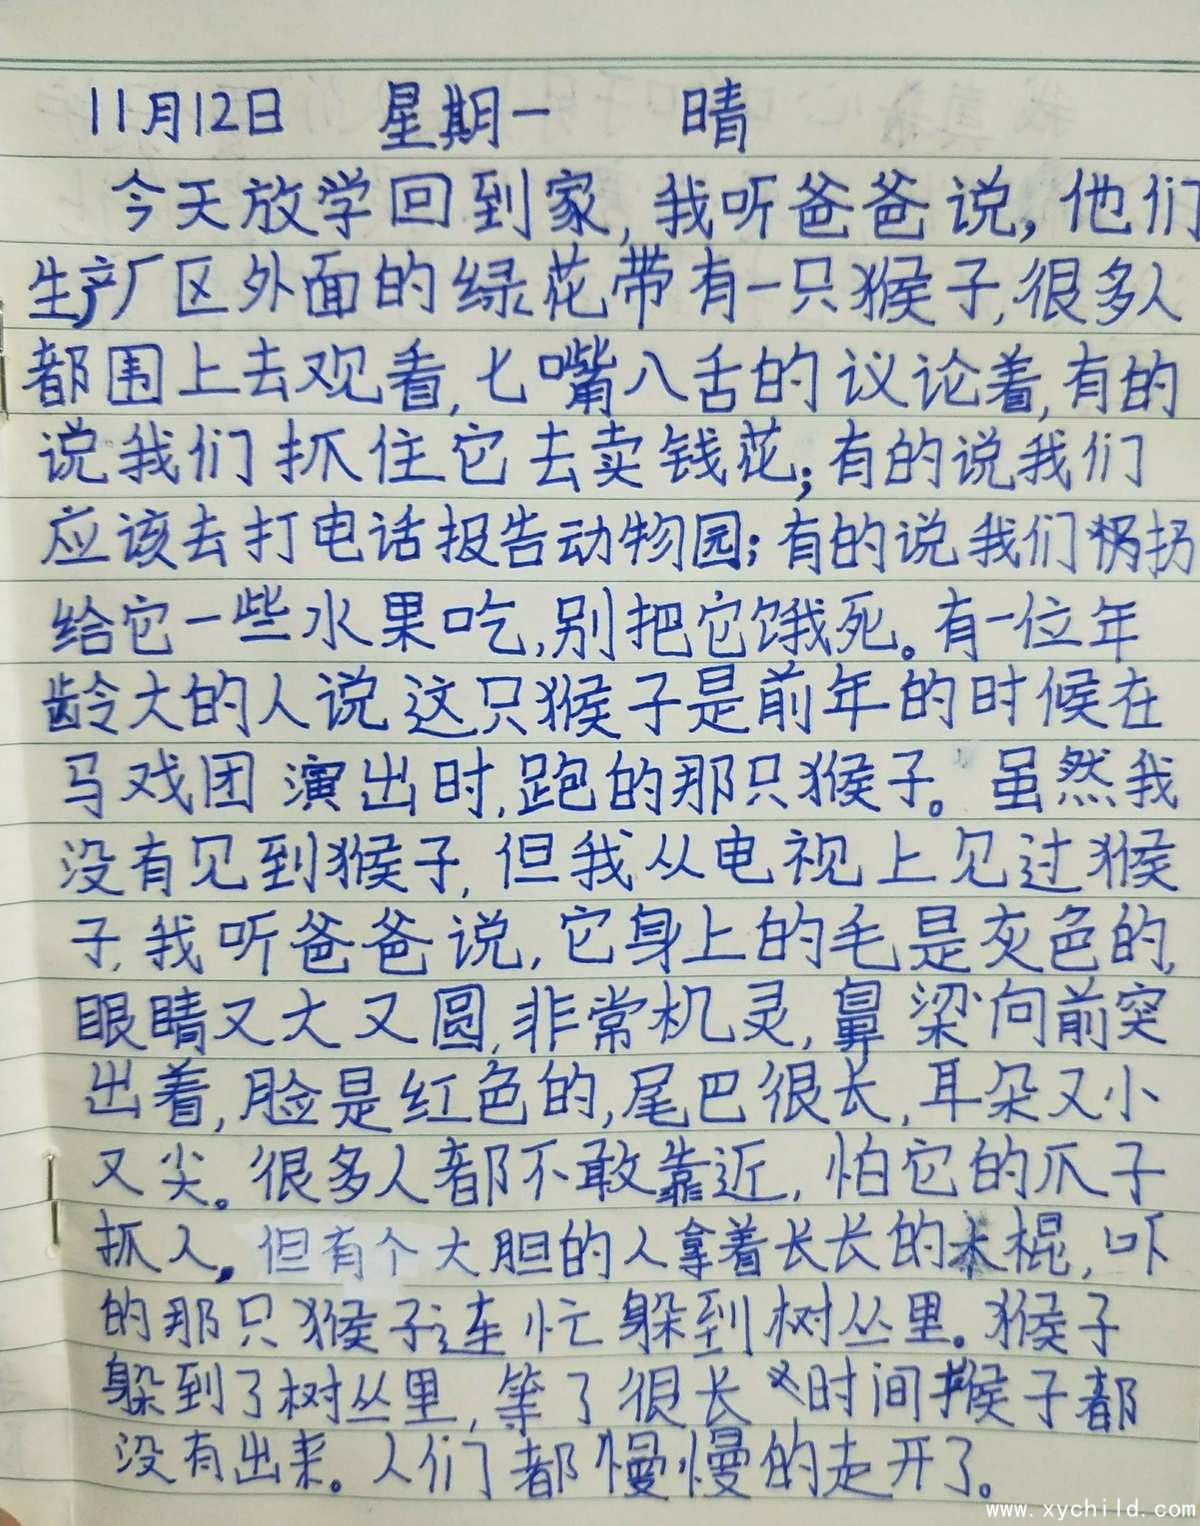 11月12日 星期一 晴
今天放学回到家,我听爸爸说,他们
生产厂区外面的绿花带有一只猴子,很多人
都围上去观看,七嘴八舌的议论着,有的
说我们抓住它去卖钱花;有的说我们
应该去打电话报告动物园;有的说我们扔
给它一些水果吃,别把它饿死。有一位年
龄大的人说这只猴子是前年的时候在
马戏团演出时,跑的那只猴子。虽然我
没有见到猴子,但我从电视上见过猴
子,我听爸爸说,它身上的毛是灰色的,
眼睛又大又圆,非常机灵,鼻梁向前突
出着,脸是红色的,尾巴很长,耳朵又小
又尖。很多人都不敢靠近,怕它的爪子
抓人,但有个大胆的人拿着长长的木棍,吓
的那只猴子连忙躲到树丛里。猴子
躲到了树丛里,等了很长时间猴子都
没有出来。人们都慢慢的走开了。
www.xychild.com